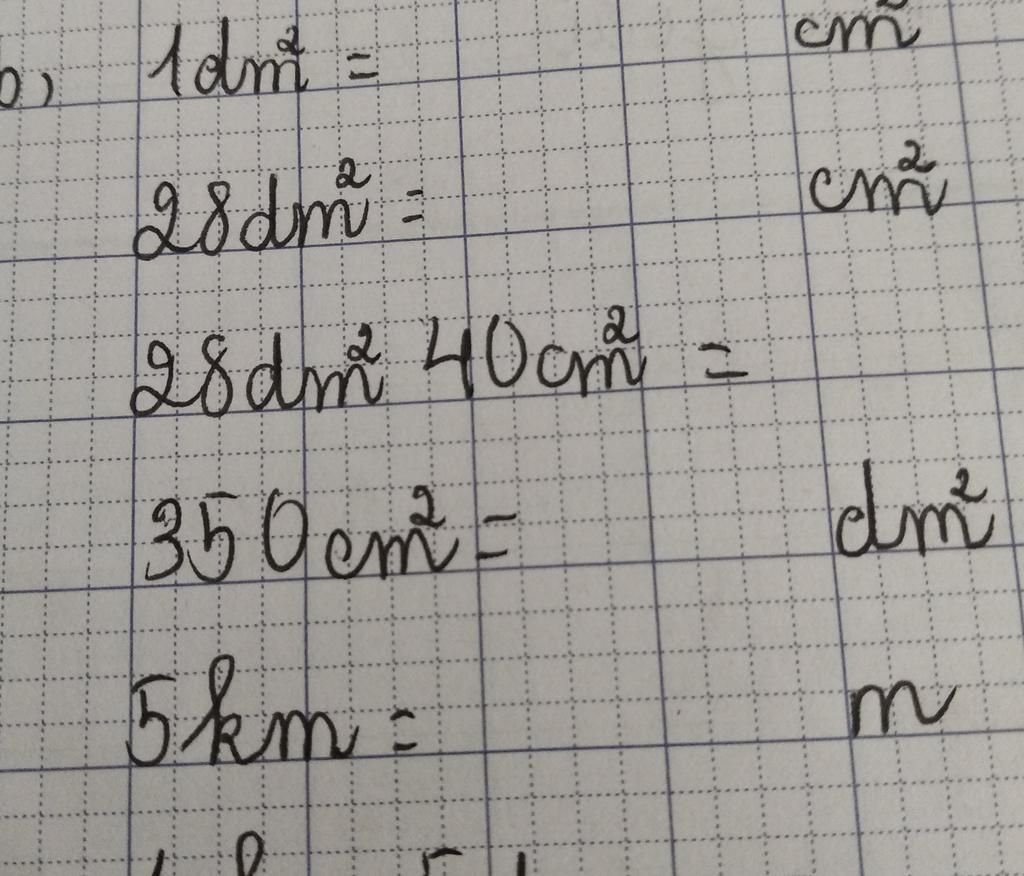 b, 1dm² = cm²
28dm² = cm²
28dm² 40cm² =
350cm² = dm²
5km = m